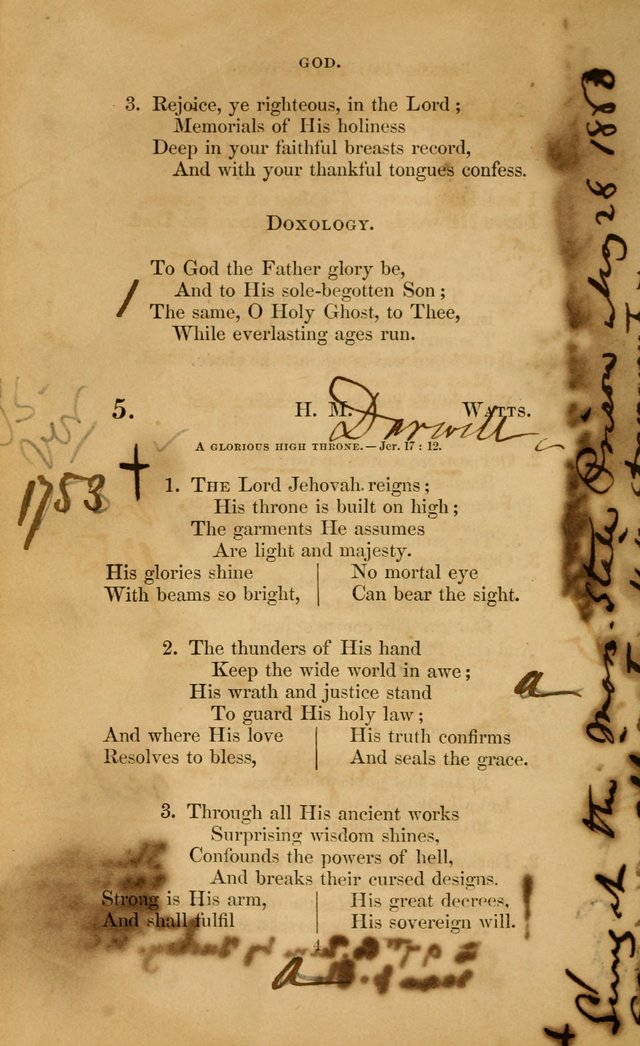 GOD.
3. Rejoice, ye righteous, in the Lord;
Memorials of His holiness
Deep in your faithful breasts record,
And with your thankful tongues confess.
DOXOLOGY.
To God the Father glory be,
And to His sole-begotten Son;
The same, O Holy Ghost, to Thee,
While everlasting ages run.
5. H. M. WATTS.
Darwell
A GLORIOUS HIGH THRONE.—Jer. 17 : 12.
1753
1. THE Lord Jehovah reigns;
His throne is built on high;
The garments He assumes
Are light and majesty.
His glories shine | No mortal eye
With beams so bright, | Can bear the sight.
2. The thunders of His hand
Keep the wide world in awe;
His wrath and justice stand
To guard His holy law;
a
And where His love | His truth confirms
Resolves to bless, | And seals the grace.
3. Through all His ancient works
Surprising wisdom shines,
Confounds the powers of hell,
And breaks their cursed designs.
Strong is His arm, | His great decrees,
And shall fulfil | His sovereign will.
4
a
Sung at the Mass. State Prison 28